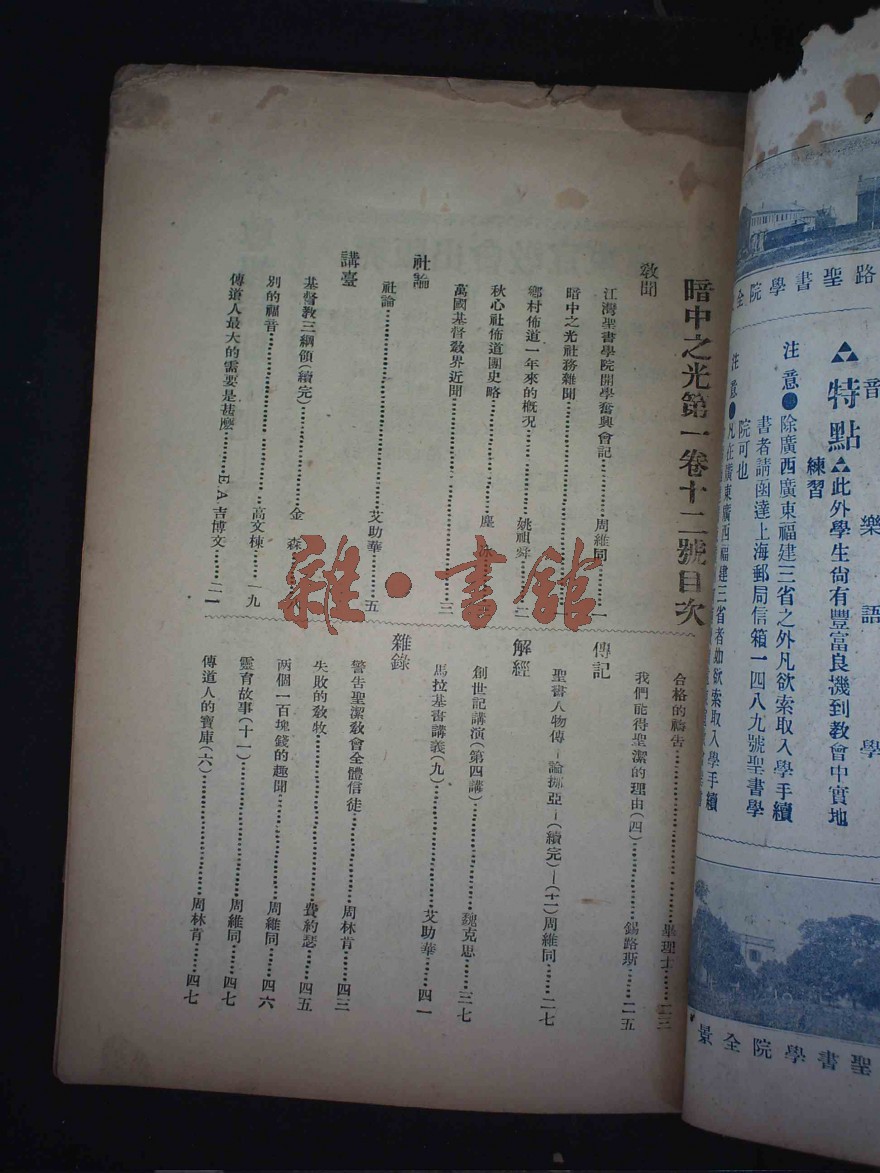 暗中之光第一卷十二號目次
教聞
江灣聖書學院開學奮興會記………周維同……一
暗中之光社務雜聞………
鄉村佈道一年來的概況………姚祖舜……二
秋心社佈道團史略………塵
萬國基督教界近聞………三
社論
社論………艾助華……五
講臺
基督教三綱領(續完)………金 森
別的福音………高文棟……一九
傳道人最大的需要是甚麼………E.A.吉博文……二一
合格的禱告………畢理士……二三
我們能得聖潔的理由(四)………錫路斯……二五
傳記
聖書人物傳—論挪亞—(續完)—(十一)周維同……二七
解經
創世記講演(第四講)………魏克思……三七
馬拉基書講義(九)………艾助華……四一
雜錄
警告聖潔教會全體信徒………周林肯……四三
失敗的教牧………費約瑟……四五
兩個一百塊錢的趣聞………周維同……四六
靈育故事(十一)………周維同……四七
傳道人的寶庫(六)………周林肯……四七
雜·書館
路聖書學院全
音樂語學
▲▲特點▲▲此外學生尚有豐富良機到教會中實地
練習
注意●除廣西廣東福建三省之外凡欲索取入學手續
書者請函達上海郵局信箱一四八九號聖書學
院可也
注意●凡在廣東廣西福建三省者如欲索取入學手續
聖書學院全景